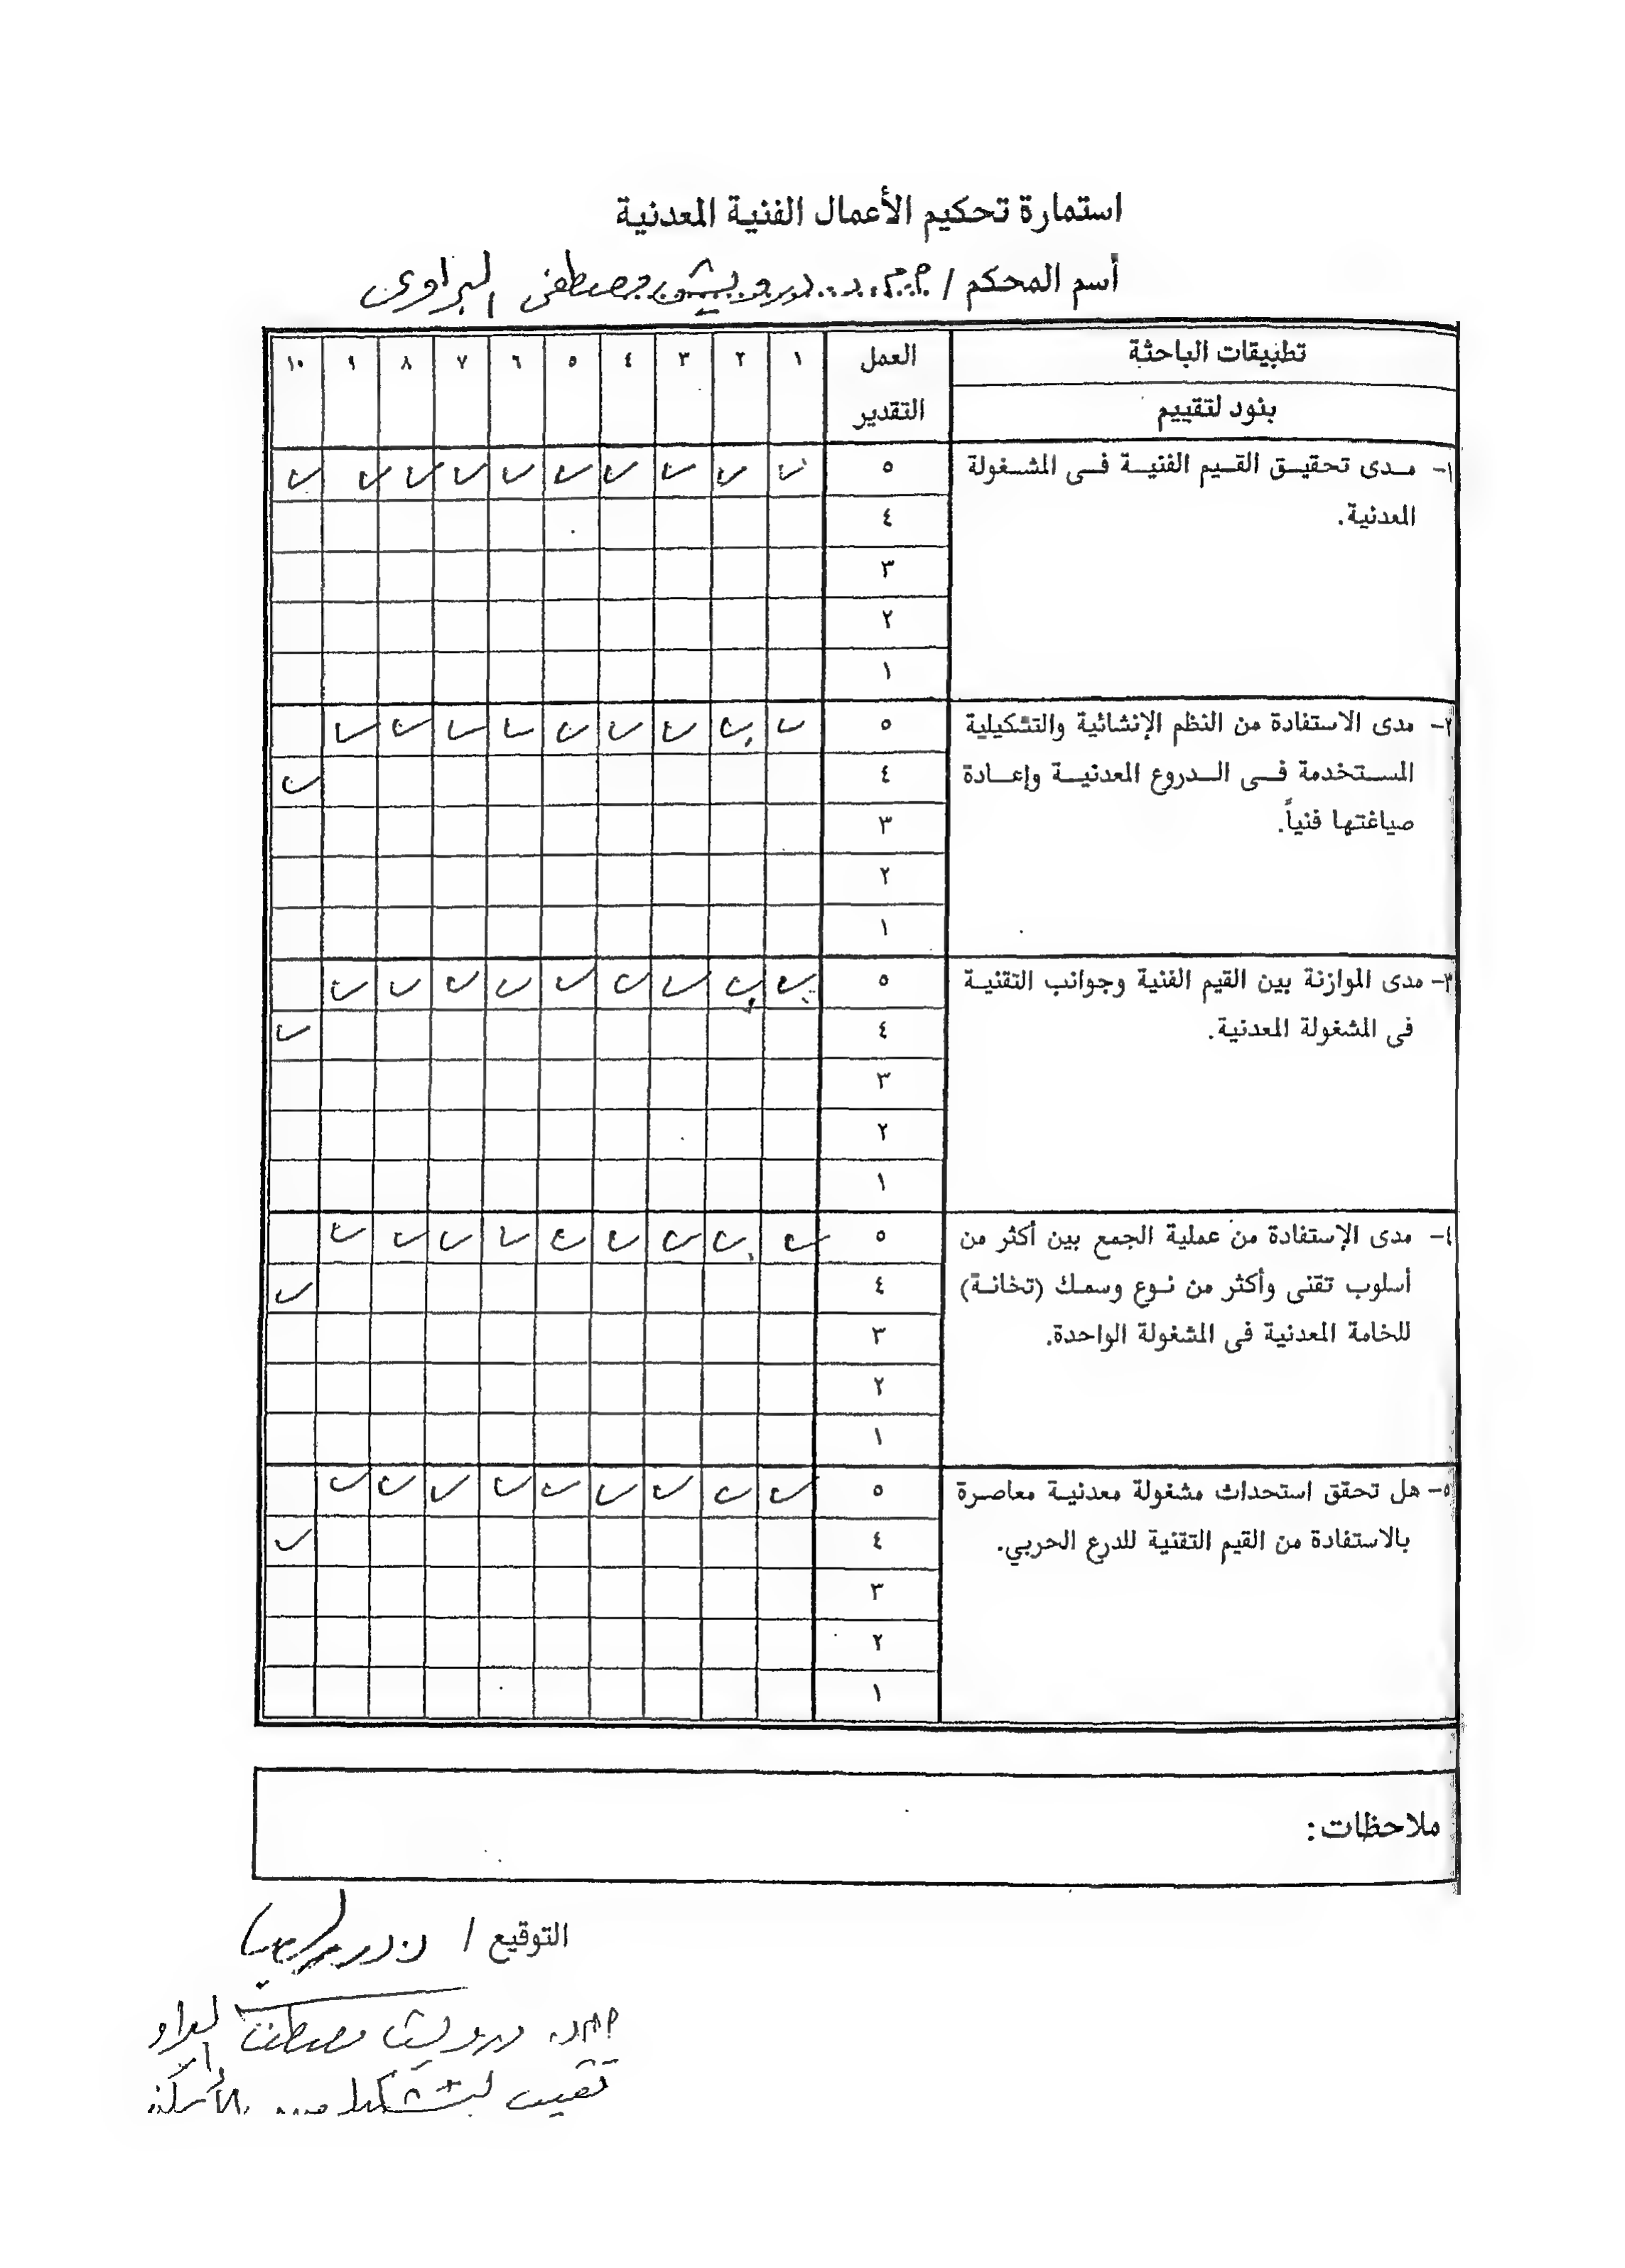 استمارة تحكيم الأعمال الفنية المعدنية
أسم المحكم / أ.م.د. درويش مصطفى البراوى
تطبيقات الباحثة العمل ١ ٢ ٣ ٤ ٥ ٦ ٧ ٨ ٩ ١٠
بنود لتقييم التقدير
١- مدى تحقيق القيم الفنية فى المشغولة ٥ ✓ ✓ ✓ ✓ ✓ ✓ ✓ ✓ ✓ ✓
المعدنية. ٤
٣
٢
١
٢- مدى الاستفادة من النظم الإنشائية والتشكيلية ٥ ✓ ✓ ✓ ✓ ✓ ✓ ✓ ✓ ✓
المستخدمة فى الدروع المعدنية وإعادة ٤ ✓
صياغتها فنياً. ٣
٢
١
٣- مدى الموازنة بين القيم الفنية وجوانب التقنية ٥ ✓ ✓ ✓ ✓ ✓ ✓ ✓ ✓ ✓
فى المشغولة المعدنية. ٤ ✓
٣
٢
١
٤- مدى الإستفادة من عملية الجمع بين أكثر من ٥ ✓ ✓ ✓ ✓ ✓ ✓ ✓ ✓ ✓
أسلوب تقنى وأكثر من نوع وسمك (تخانة) ٤ ✓
للخامة المعدنية فى المشغولة الواحدة. ٣
٢
١
٥- هل تحقق استحداث مشغولة معدنية معاصرة ٥ ✓ ✓ ✓ ✓ ✓ ✓ ✓ ✓ ✓
بالاستفادة من القيم التقنية للدرع الحربي. ٤ ✓
٣
٢
١
ملاحظات:
التوقيع /
درويش مصطفى